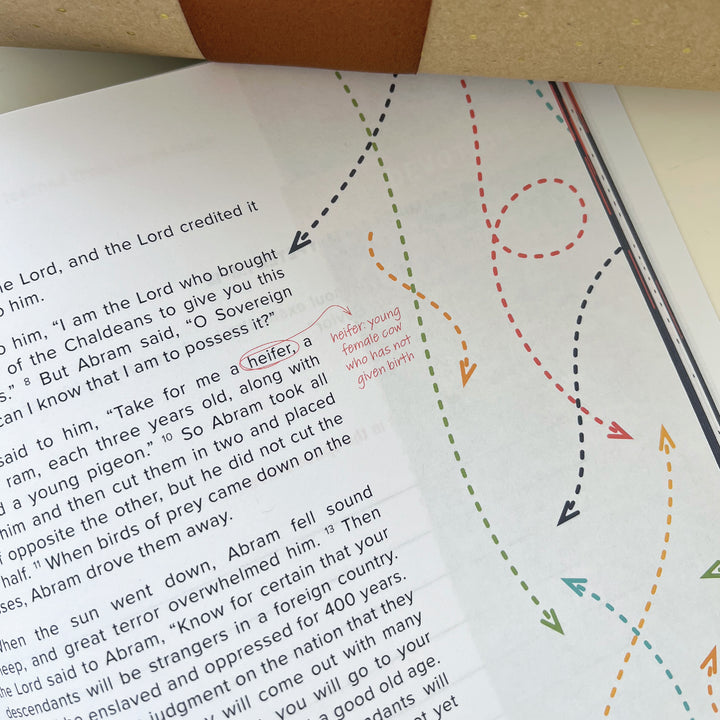 Lord, and the Lord credited it
him.
him, “I am the Lord who brought
of the Chaldeans to give you this
⁸ But Abram said, “O Sovereign
can I know that I am to possess it?”
said to him, “Take for me a heifer, a
ram, each three years old, along with
a young pigeon.” ¹⁰ So Abram took all
him and then cut them in two and placed
opposite the other, but he did not cut the
half. ¹¹ When birds of prey came down on the
Abram drove them away.
heifer: young
female cow
who has not
given birth
When the sun went down, Abram fell sound
and great terror overwhelmed him. ¹³ Then
the Lord said to Abram, “Know for certain that your
descendants will be strangers in a foreign country.
enslaved and oppressed for 400 years.
judgment on the nation that they
will come out with many
you will go to your
a good old age.
will
not yet